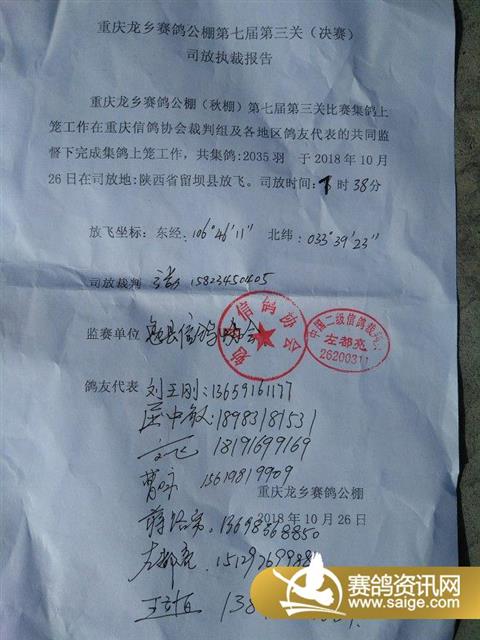 重庆龙乡赛鸽公棚第七届第三关（决赛）
司放执裁报告
重庆龙乡赛鸽公棚（秋棚）第七届第三关比赛集鸽上
笼工作在重庆信鸽协会裁判组及各地区鸽友代表的共同监
督下完成集鸽上笼工作，共集鸽:2035羽 于2018年10月
26日在司放地:陕西省留坝县放飞。司放时间:7时38分
放飞坐标：东经：106°46'11" 北纬：033°39'23"
司放裁判 15823450405
监赛单位 勉县信鸽协会
勉县信鸽协会
中国二级信鸽裁判
左都亮
26200311
鸽友代表 刘王刚:13659161177
屈中敏:18983181531
18191699169
曹 15619819909
重庆龙乡赛鸽公棚
2018年10月26日
蒋 13698368850
左都亮
王 138
赛鸽资讯网
www.saige.com